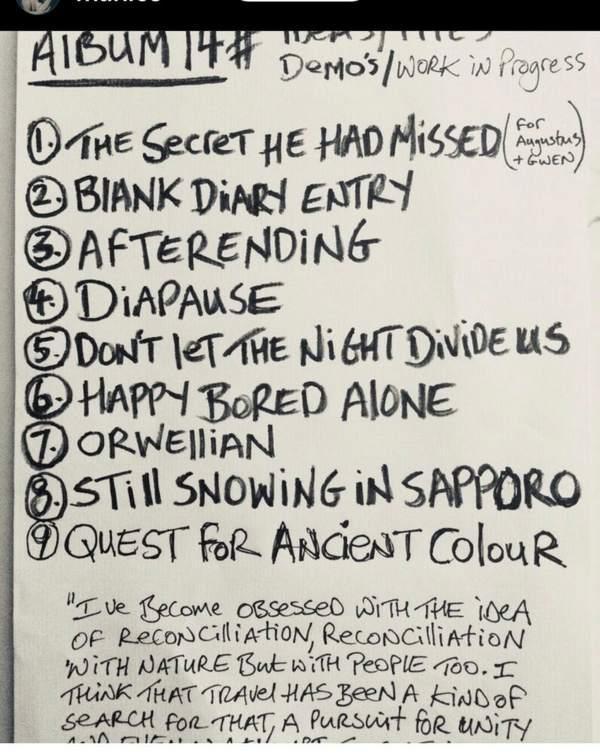 ALBUM 14#
DEMO'S/WORK IN Progress
① THE SecreT HE HAD MiSSED (For
Augustus
+ GWEN)
② BLANK DiARY ENTRY
③ AFTERENDiNG
④ DiAPAUSE
⑤ DON'T leT THE NiGHT DiViDE US
⑥ HAPPY BORED AlONE
⑦ ORWElliAN
⑧ STill SNOWiNG iN SAPPORO
⑨ QUEST FoR ANCieNT ColouR
"I've Become OBSESSED WiTH THE iDeA
OF ReCONCilliATiON, ReCONCilliATiON
WiTH NATURE But WiTH PEOPLE TOO. I
THiNK THAT TRAVel HAS BEEN A KiND OF
SEARCH FOR THAT, A PURSUiT FOR UNiTY